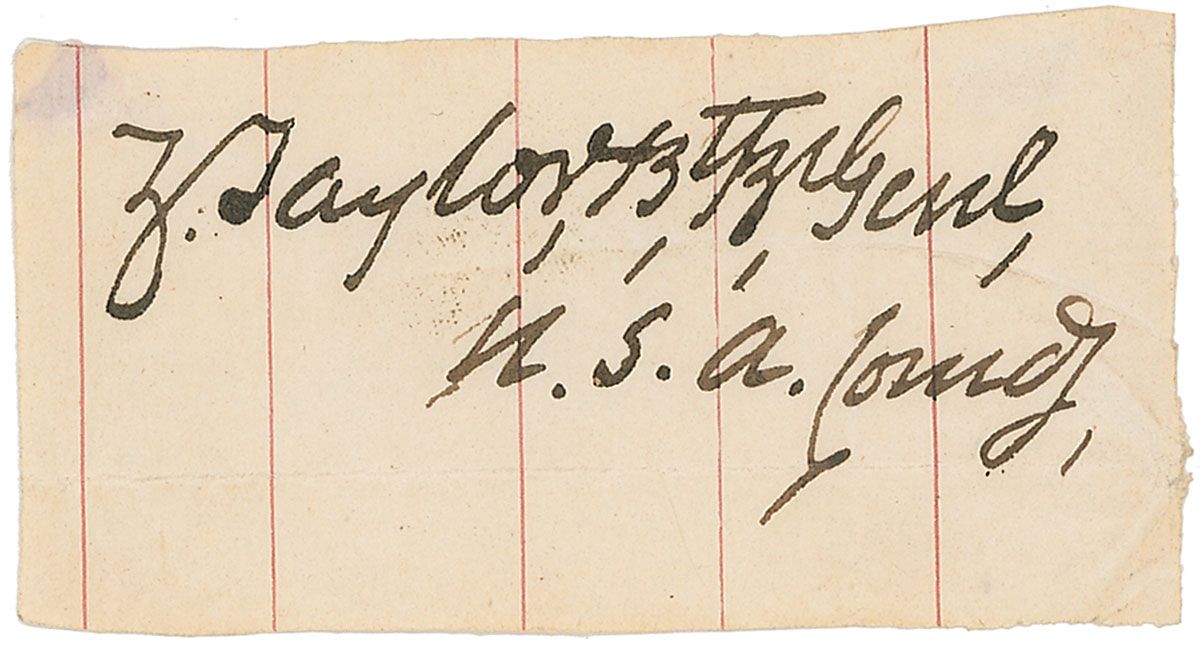 Z. Taylor, Bt. Br. Genl,
U. S. A. Comdg,